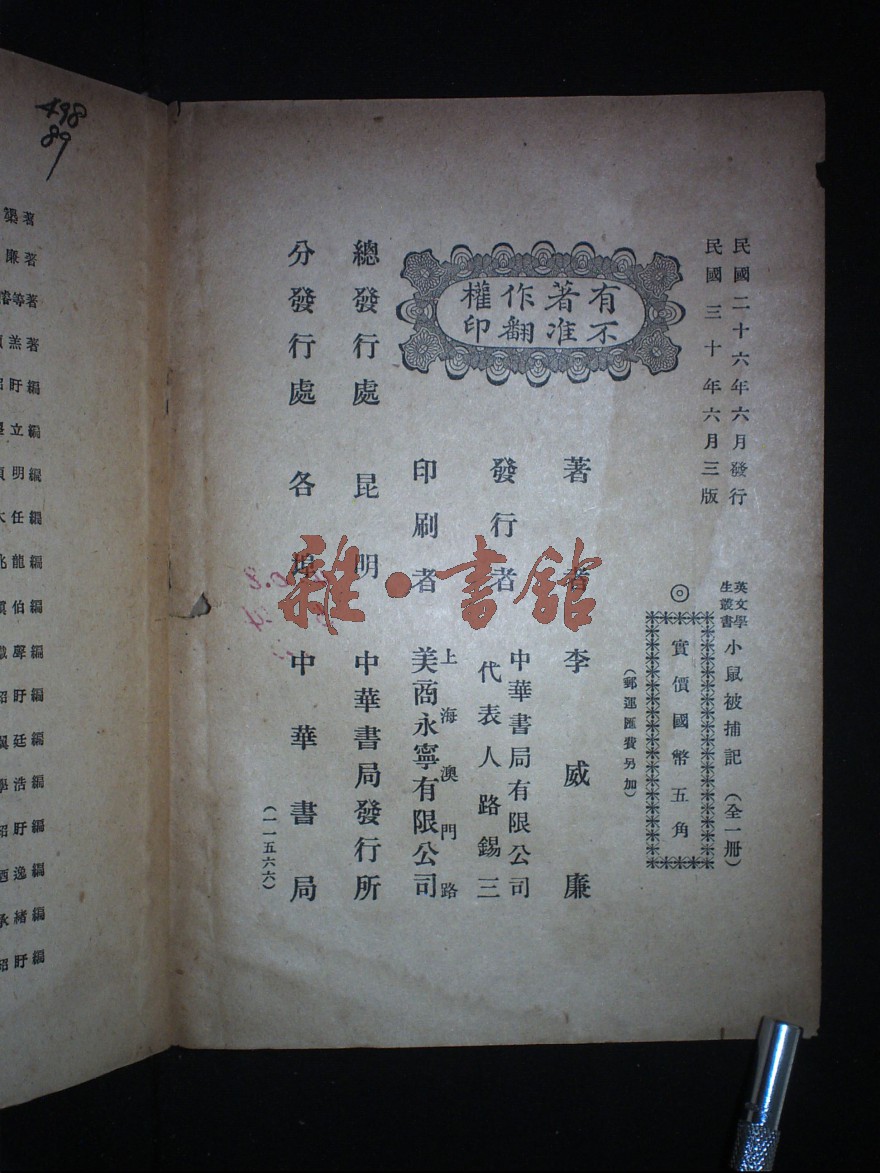 民國二十六年六月發行
民國三十年六月三版
英文學生叢書
小鼠被捕記（全一冊）
◎實價國幣五角
（郵運匯費另加）
有著作權
不准翻印
著者 李威廉
發行者 中華書局有限公司
代表人路錫三
印刷者 上海澳門路
美商永寧有限公司
總發行處 昆明 中華書局發行所
分發行處 各埠 中華書局
（一一五六六）
雅·書館
498
89
著
廉著
等著
羔著
盱編
立編
明編
任編
龍編
伯編
聲編
盱編
廷編
浩編
盱編
逸編
緒編
盱編